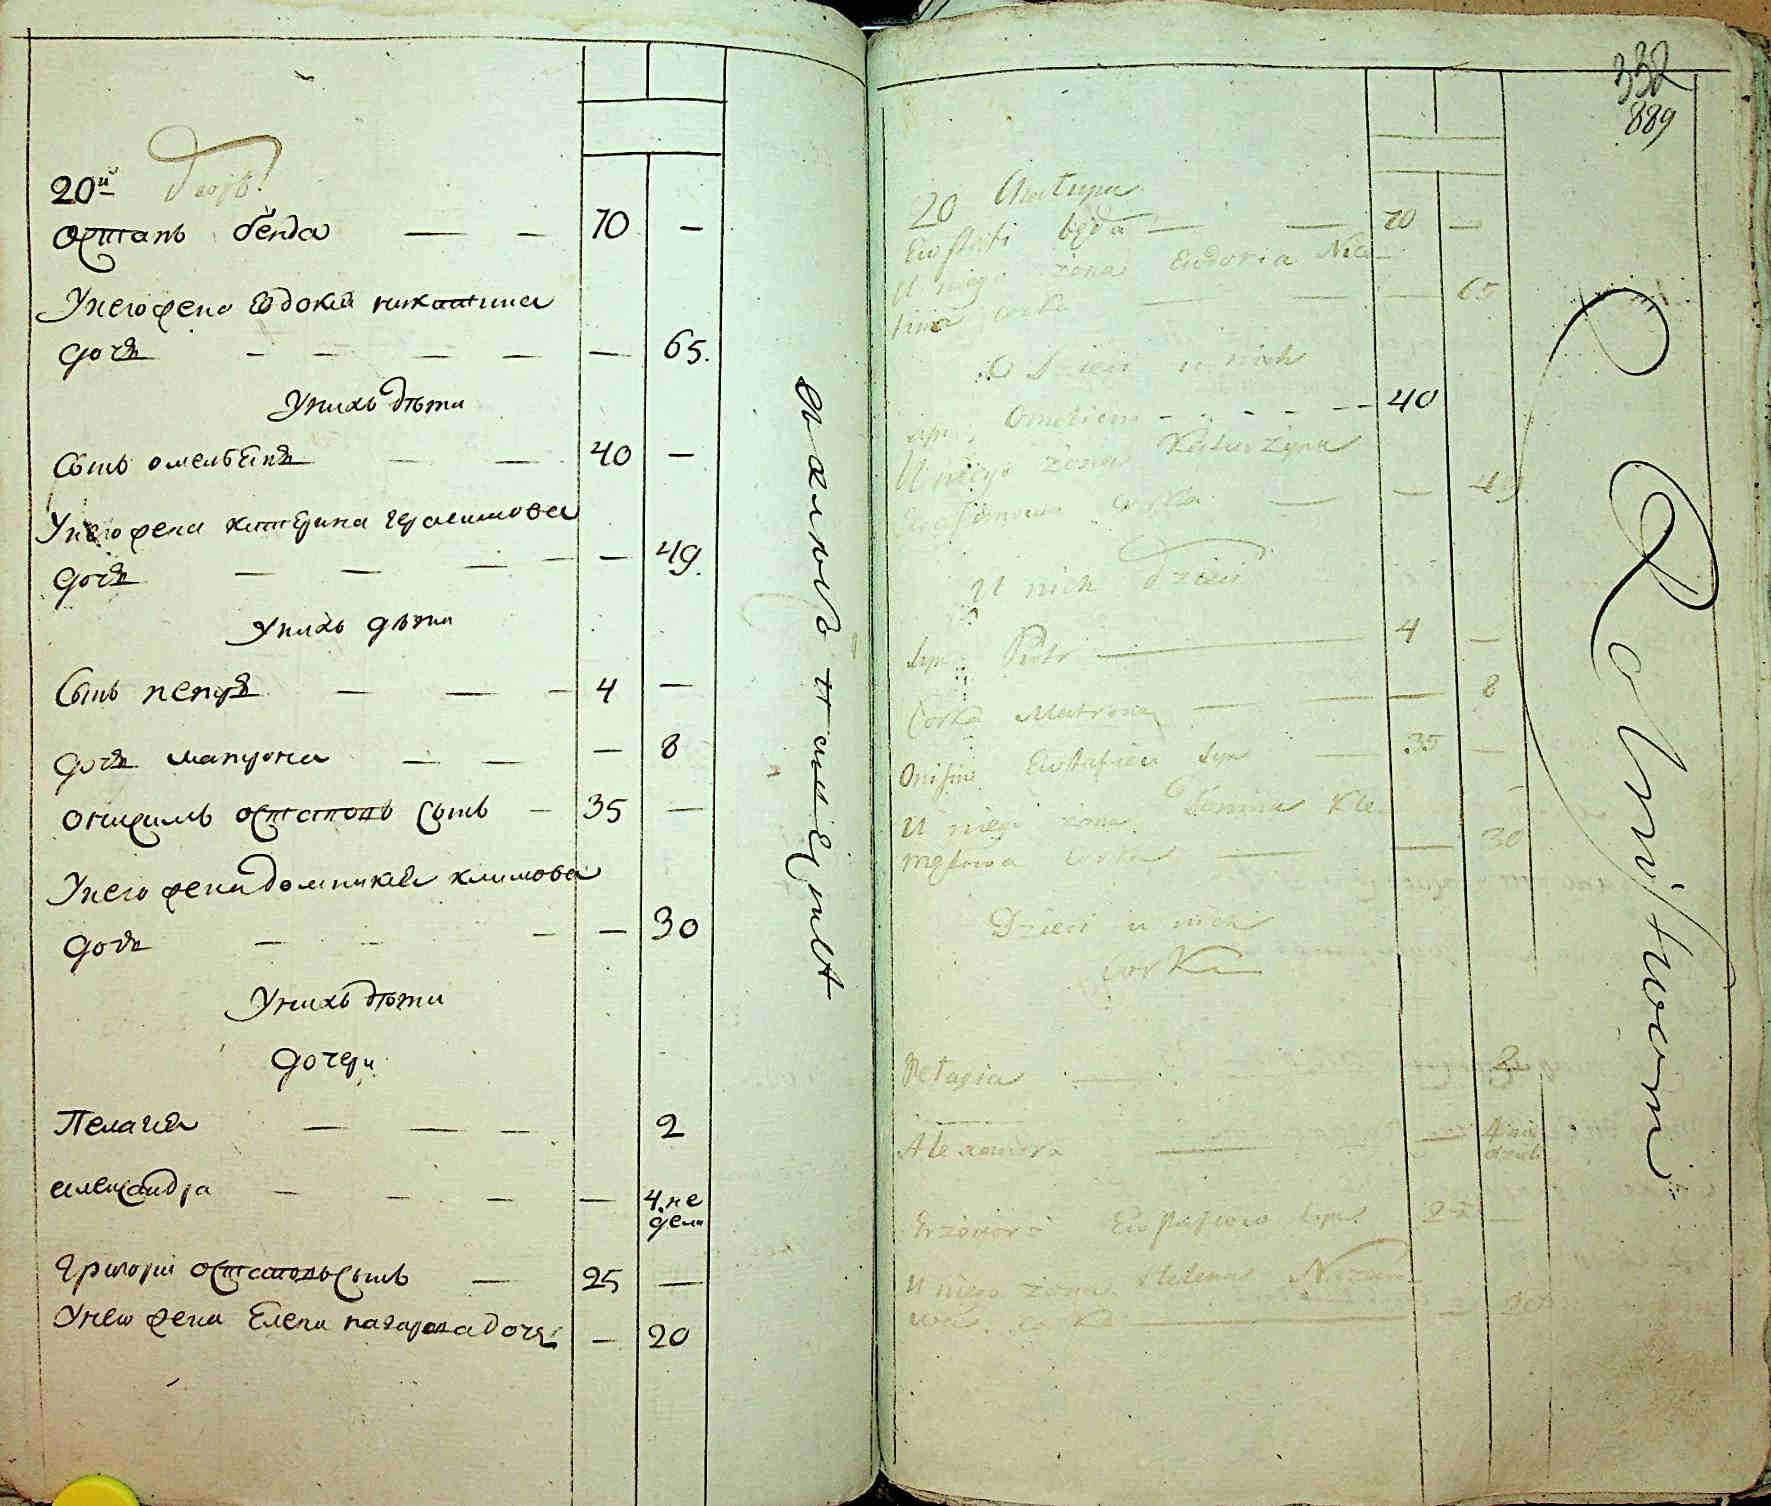 20й дворъ
Остапъ бенда — — 70 —
У него жена Евдокия никитина
дочь — — — — — 65.
У нихъ дѣти
Сынъ омельянъ — — 40 —
У него жена катерина герасимова
дочь — — — — — 49.
У нихъ дѣти
Сынъ петръ — — — 4 —
дочь матрона — — — 8
онисимъ остаповъ сынъ — 35 —
У него жена домникия климова
дочь — — — — 30
У нихъ дѣти
дочери
Пелагия — — — 2
александра — — — — 4. не
дели
григорий остаповъ сынъ — 25 —
У него жена Елена назарова дочь — 20
332
889
20 Chałupa
Eustachi Będa — — 70 —
U niego żona Eudoxia Niki-
tina corka — — — 65
Dzieci u nich
syn Omelian - - - - - 40
U niego żona Katarzyna
corka — — 49
U nich dzieci
syn Piotr — 4 —
Corka Matrona — — — 8
Onisim Eustafiew syn — 35 —
U niego żona Domina Kle-
mętowa corka — — 30
Dzieci u nich
Corki
Pelagia — 2
Alexandra — — 4 nie
dzieli
Hrzehor Eustafiew syn 25 —
U niego żona Helena Nazaro-
wa corka — — 20